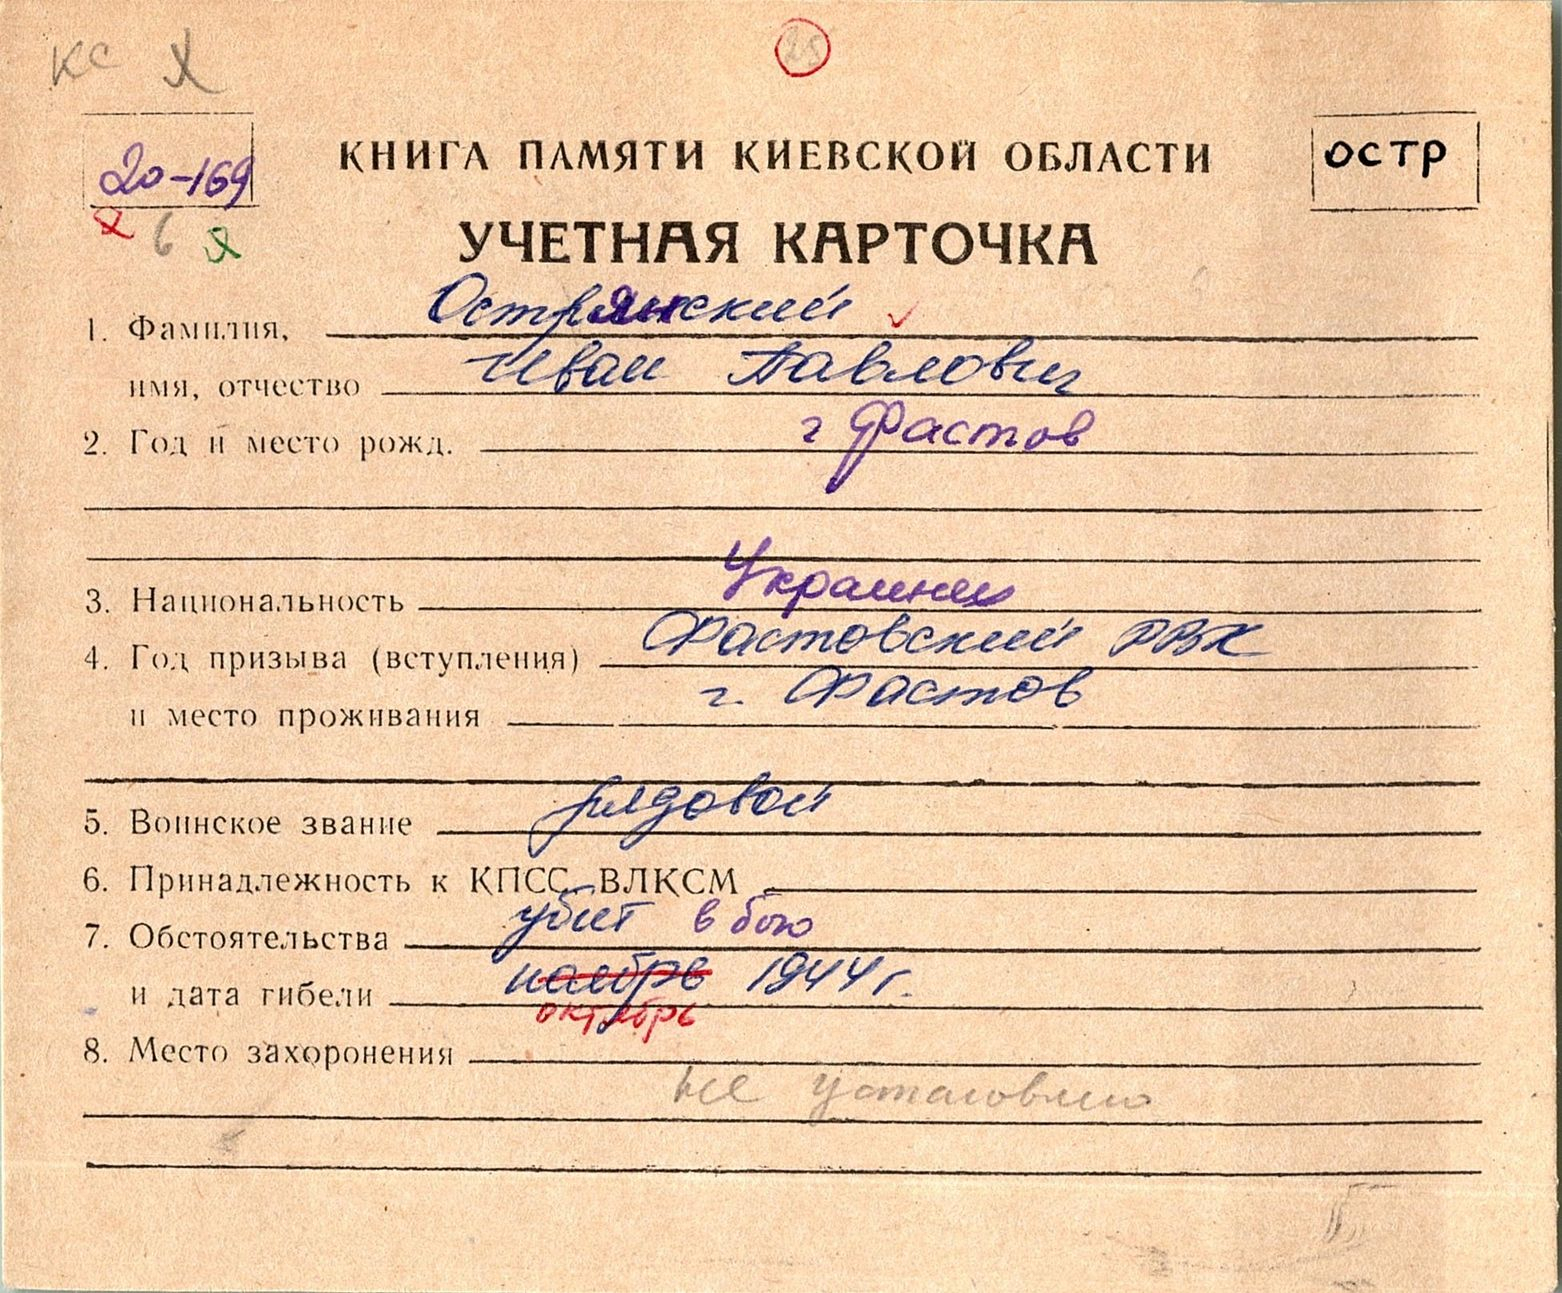 КС
25
20-169
6
КНИГА ПАМЯТИ КИЕВСКОЙ ОБЛАСТИ
ОСТР
УЧЕТНАЯ КАРТОЧКА
1. Фамилия, Острянский
имя, отчество Иван Павлович
2. Год и место рожд. г Фастов
3. Национальность Украинец
4. Год призыва (вступления) Фастовский РВК
и место проживания г. Фастов
5. Воинское звание рядовой
6. Принадлежность к КПСС, ВЛКСМ
7. Обстоятельства убит в бою
и дата гибели ноябрь 1944 г.
октябрь
8. Место захоронения
не установлено